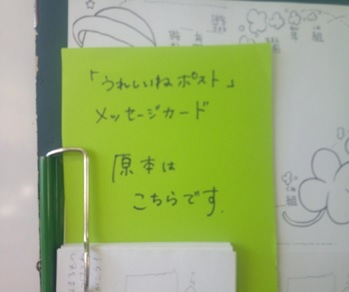 「うれしいねポスト」
メッセージカード
原本は
こちらです.
年
組